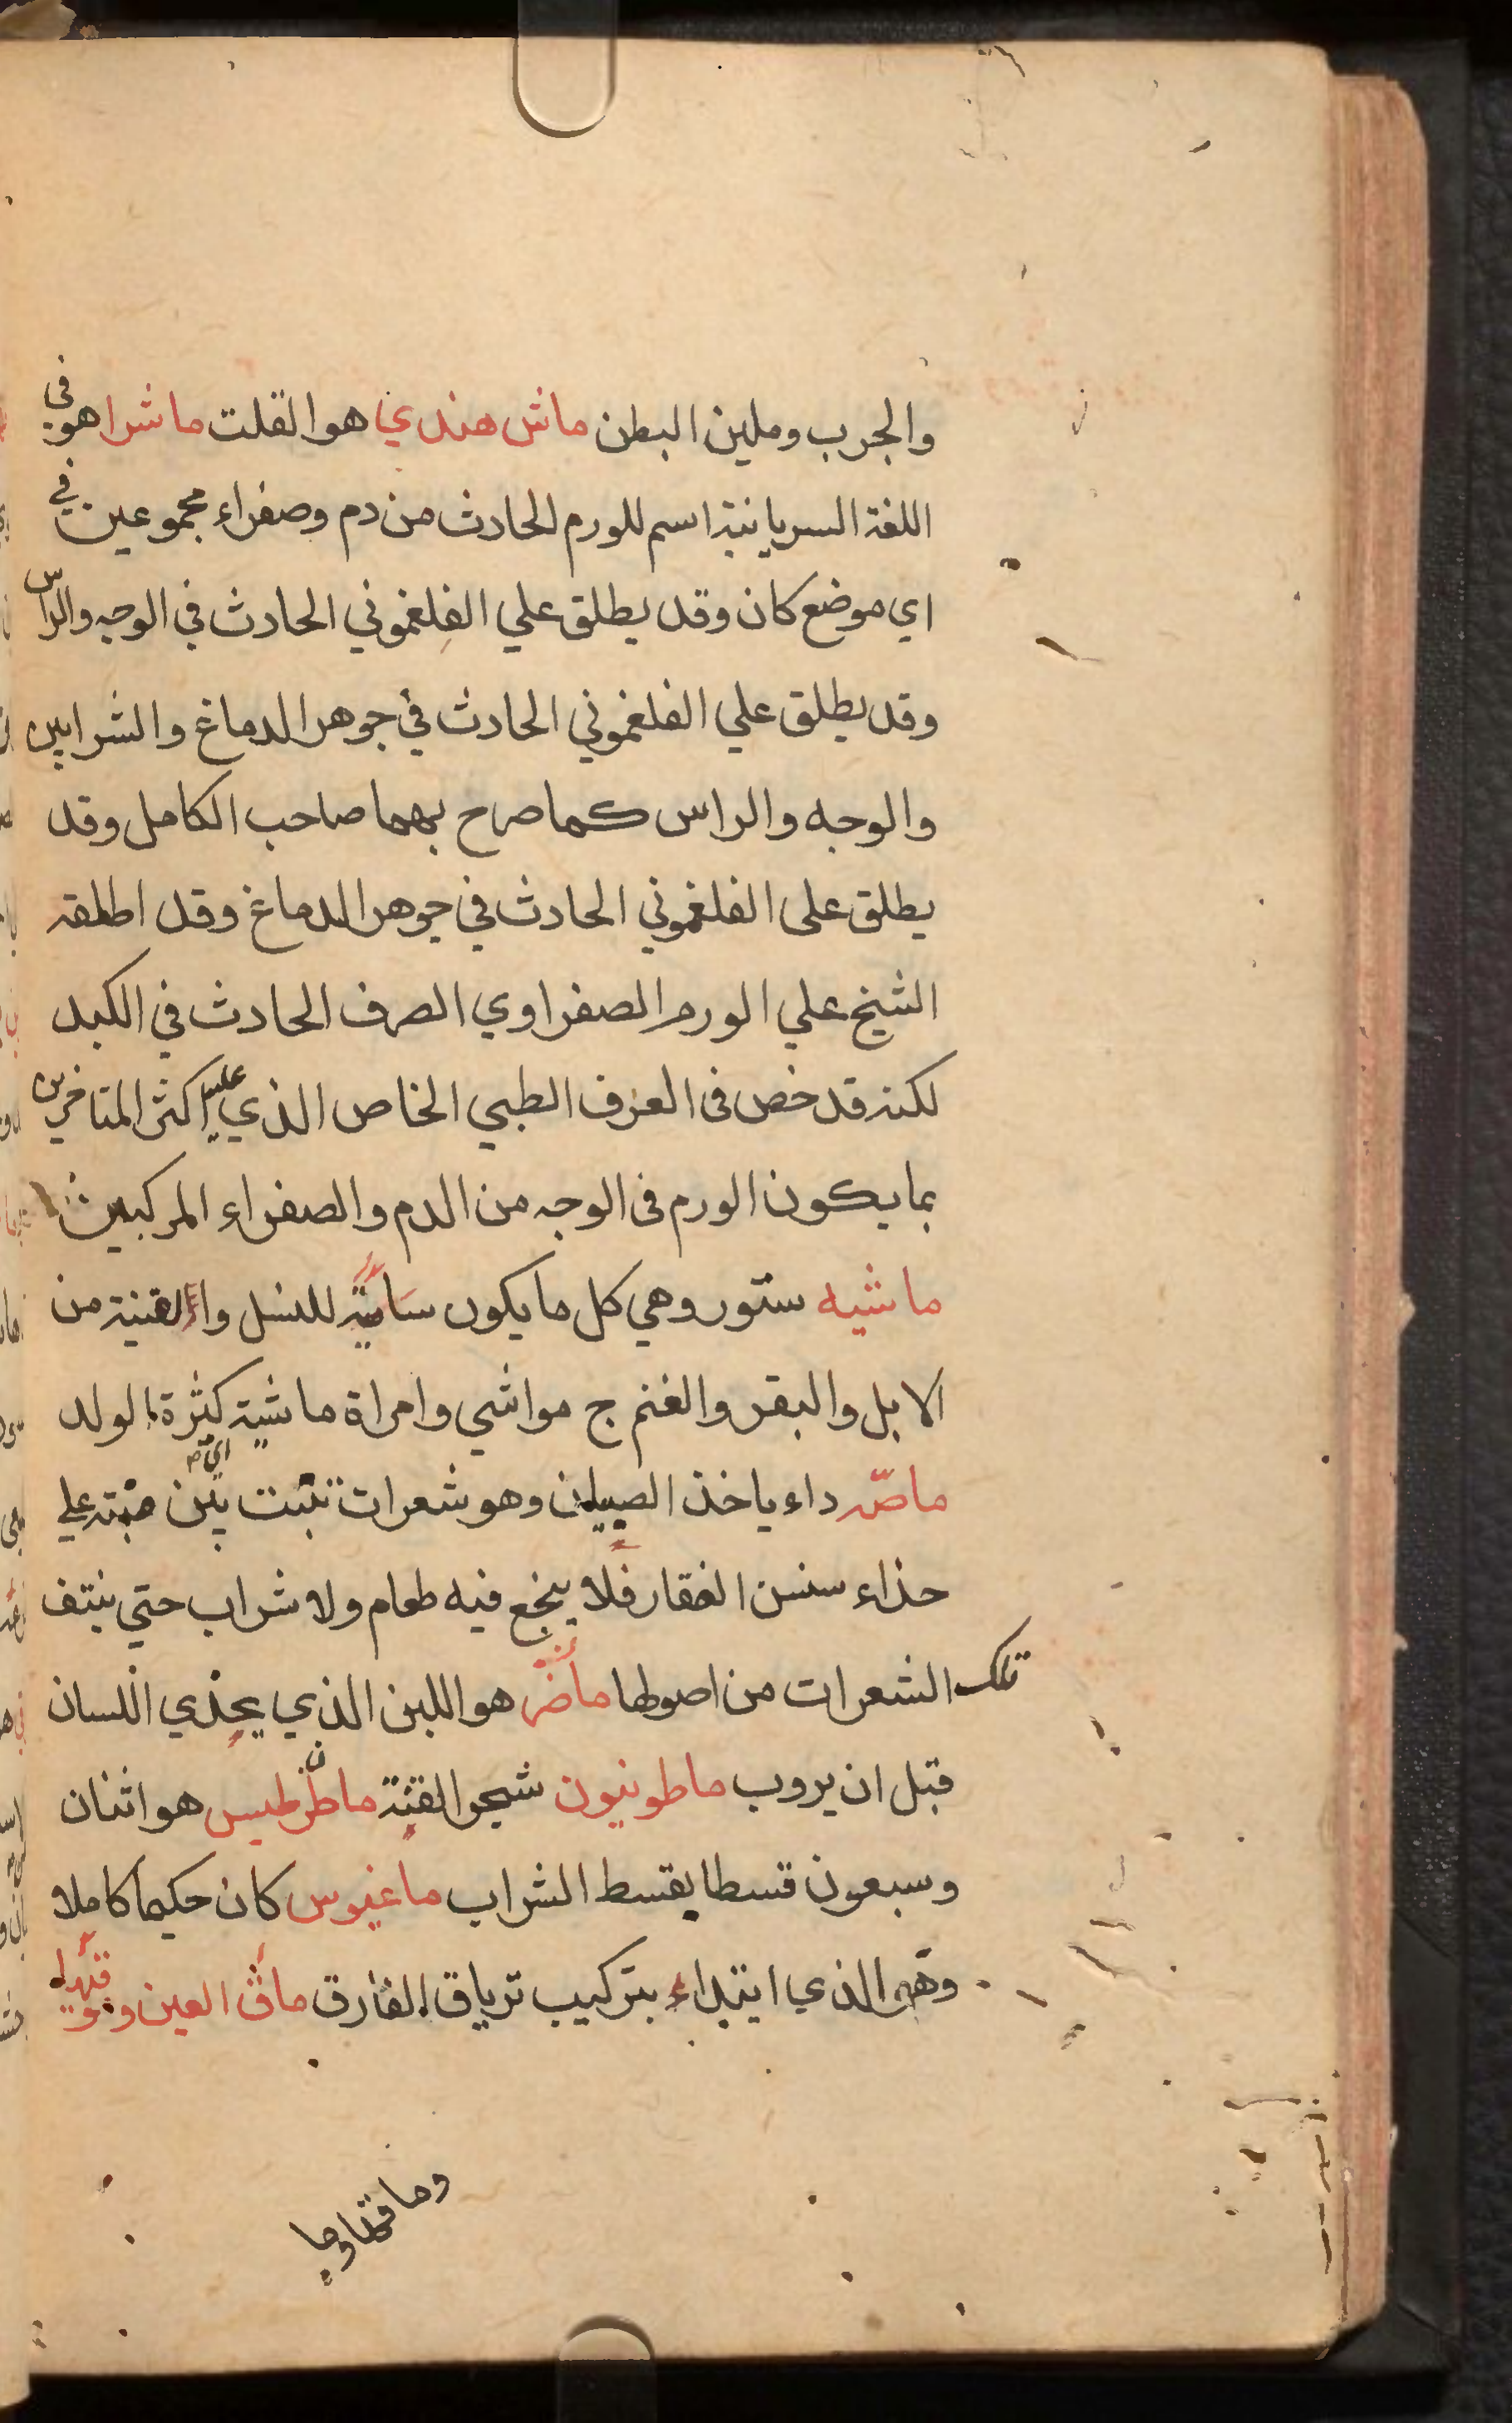 والجرب وملين البطن ماش هندي هو القلت ماشرا هو في
اللغة السريانية اسم للورم الحادث من دم وصفراء مجموعين في
اي موضع كان وقد يطلق علي الفلغموني الحادث في الوجه والراس
وقد يطلق علي الفلغموني الحادث في جوهر الدماغ والشرايين
والوجه والراس كما صرح بهما صاحب الكامل وقد
يطلق على الفلغموني الحادث في جوهر الدماغ وقد اطلقه
الشيخ علي الورم الصفراوي الصرف الحادث في الكبد
لكنه قد خص في العرف الطبي الخاص الذي عليه اكثر المتاخرين
بما يكون الورم في الوجه من الدم والصفراء المركبين
ماشيه ستور وهي كل ما يكون سامية للنسل والقنية من
الابل والبقر والغنم ج مواشي وامراة ماشية كثرة الولد
ماصه داء ياخذ الصبيان وهو شعرات تنبت بين علي
حذاء سنسن الفقار فلا ينجع فيه طعام ولا شراب حتي ينتف
تلك الشعرات من اصولها ماضر هو اللبن الذي يحذي اللسان
قبل ان يروب ماطونيون شجر القنة ماطرنطيس هو اثنان
وسبعون قسطا بقسط الشراب ماغيوس كان حكيما كاملا
وهو الذي ابتداء بتركيب ترياق الفارق ماق العين